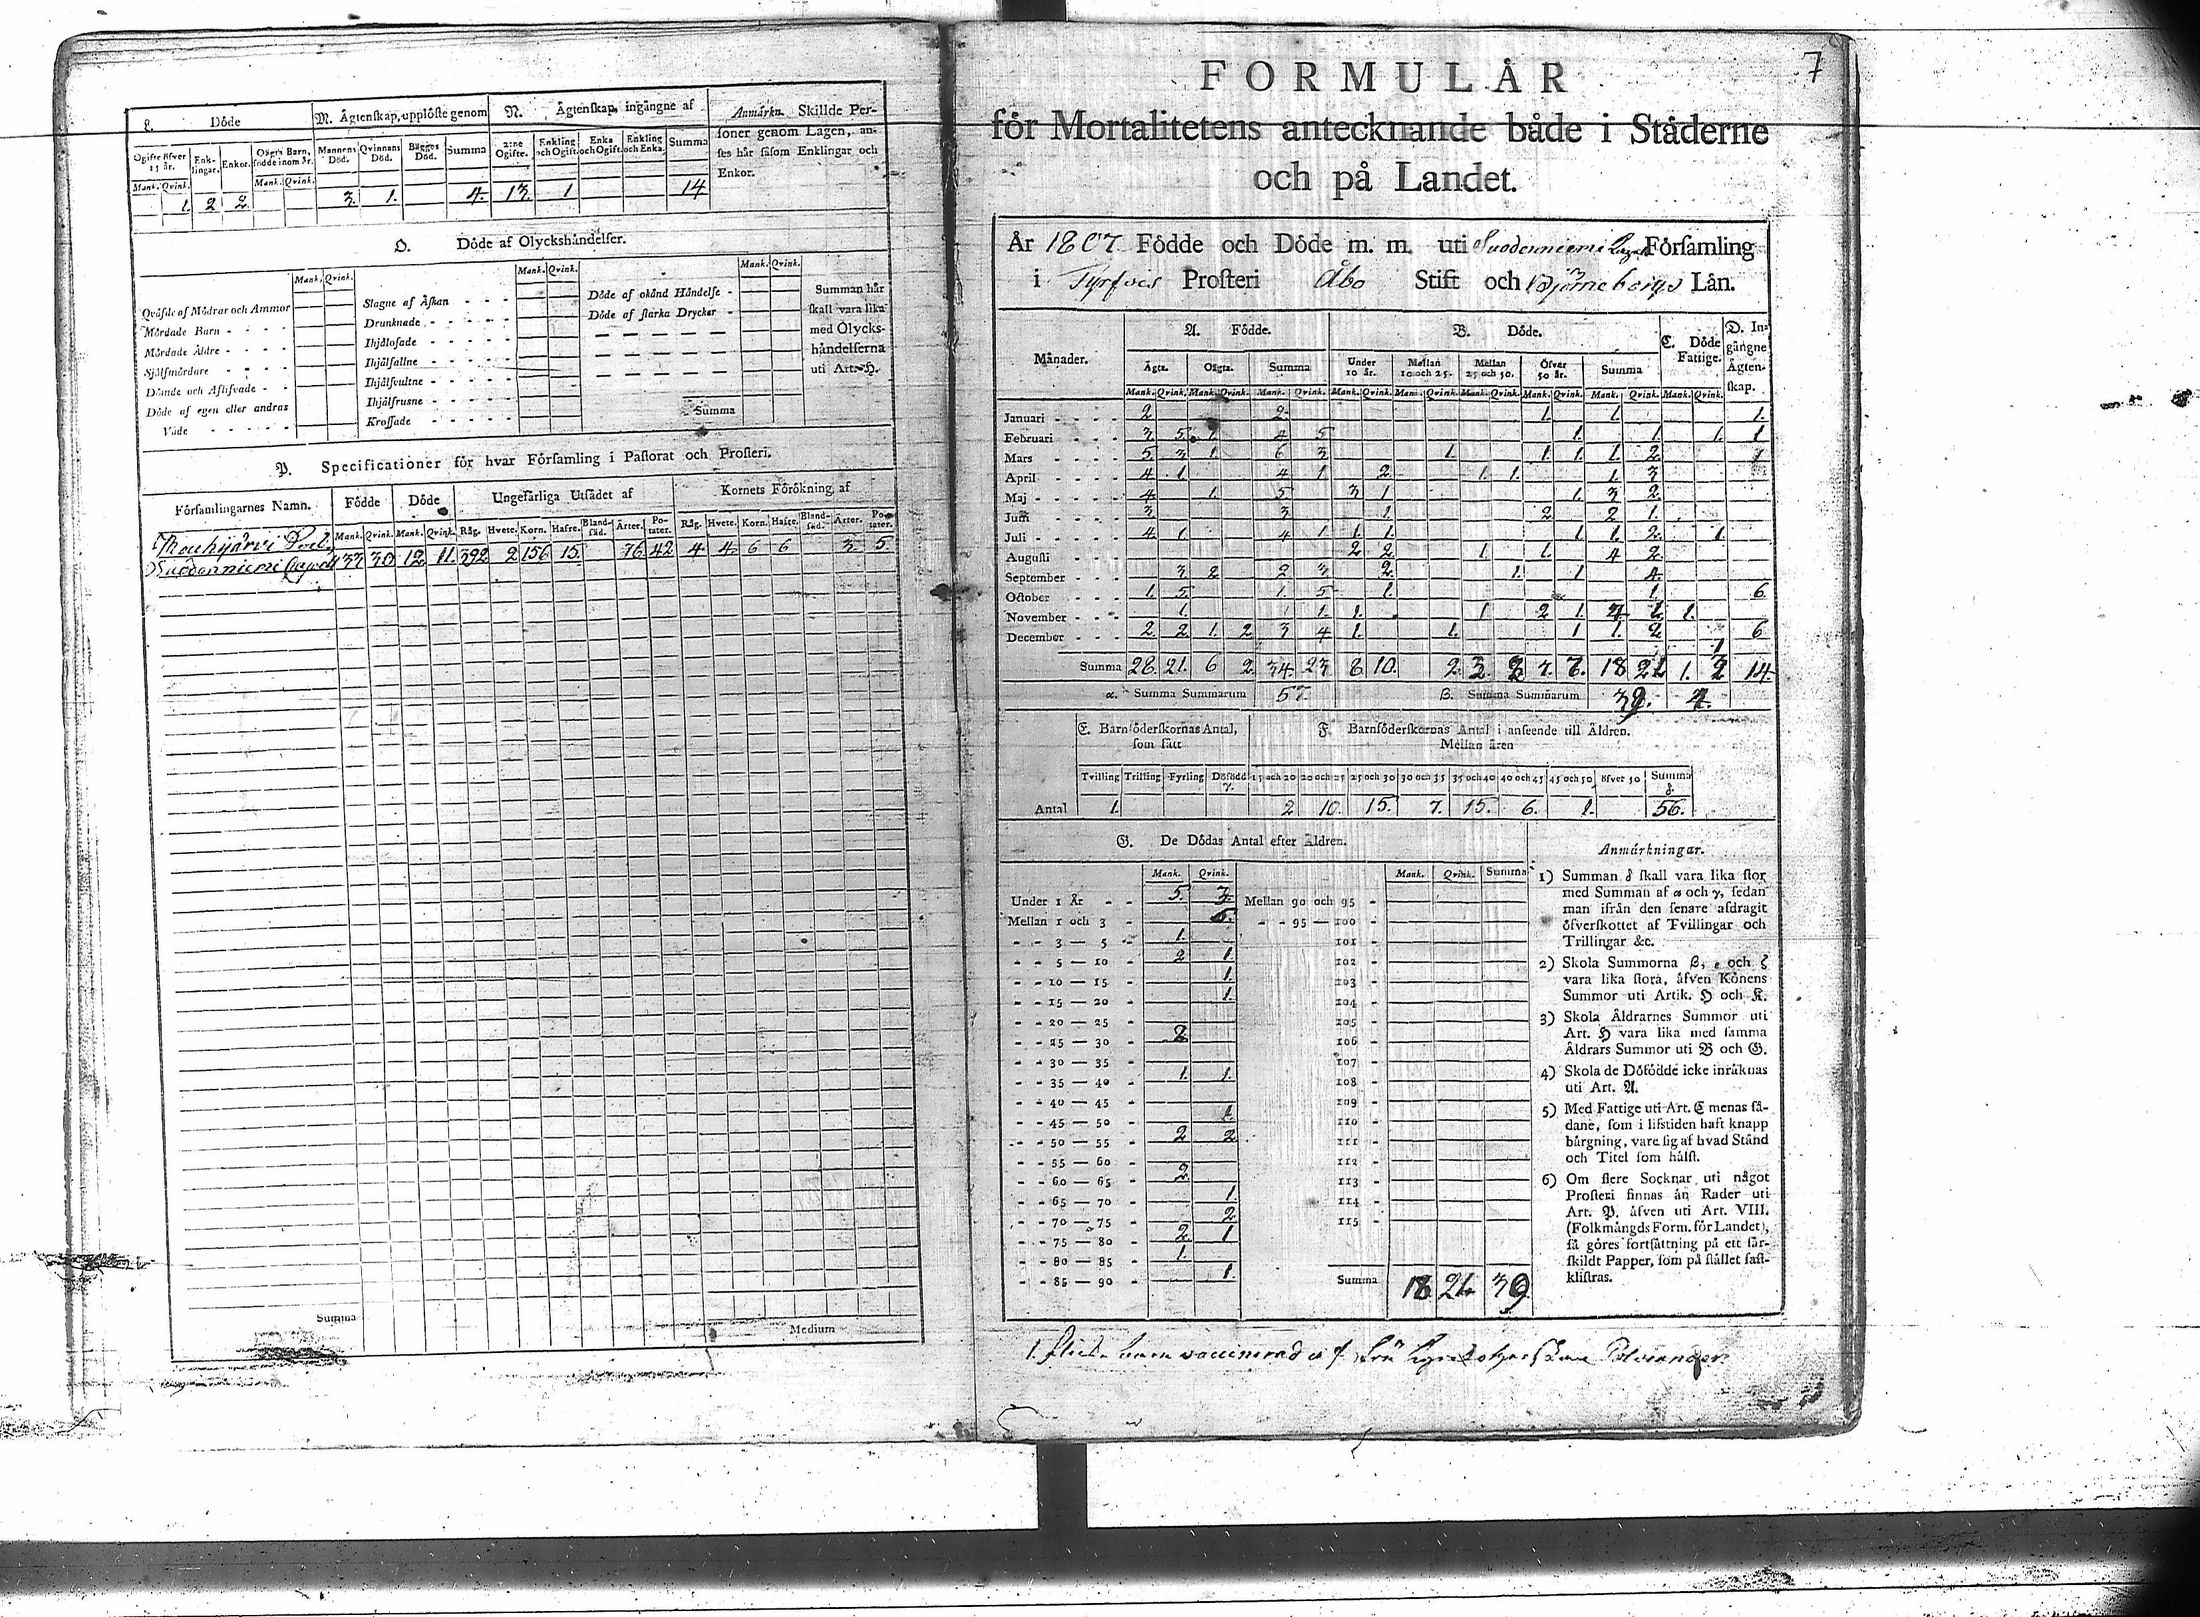 L. Döde
M. Ägtenskap, upplöste genom
N. Ägtenskap, ingångne af
Anmärkn. Skillde Personer genom Lagen, anses här såsom Enklingar och Enkor.
Ogifte öfver 15 år. Enklingar. Enkor. Oägta Barn, födde inom år. Mannens Död. Qvinnans Död. Bägges Död. Summa 2:ne Ogifte. Enkling och Ogift. Enka och Ogift. Enkling och Enka. Summa
Mank. Qvink. Mank. Qvink.
1. 2 2. 3. 1. 4. 13. 1 14
O. Döde af Olyckshändelser.
Mank. Qvink. Mank. Qvink. Mank. Qvink.
Qväfde af Mödrar och Ammor
Mördade Barn
Mördade Äldre
Sjelfmördare
Dömde och Aflifvade
Döde af egen eller andras Våde
Slagne af Åskan
Drunknade
Ihjälosade
Ihjälfallne
Ihjälsvultne
Ihjälfrusne
Krossade
Döde af okänd Händelse
Döde af starka Drycker
Summa
Summan här skall vara lika med Olyckshändelserna uti Art. H.
P. Specificationer för hvar Församling i Pastorat och Prosteri.
Församlingarnes Namn. Födde Döde Ungefärliga Utsädet af Kornets Förökning af
Mank. Qvink. Mank. Qvink. Råg. Hvete. Korn. Hafre. Blandsäd. Ärter. Potater. Råg. Hvete. Korn. Hafre. Blandsäd. Ärter. Potater.
Mouhijärvi
Suodenniemi Capell 33 30 12 11. 392 2 156 15. 76 42 4 4. 6 6 3. 5.
Summa
Medium
7
FORMULÄR
för Mortalitetens antecknande både i Städerne
och på Landet.
År 1807 Födde och Döde m. m. uti Suodenniemi Församling
i Tyrfvis Prosteri Åbo Stift och Björneborgs Län.
Månader. A. Födde. B. Döde. C. Döde Fattige. D. Ingångne Ägtenskap.
Ägta. Oägta. Summa Under 10 år. Mellan 10 och 25. Mellan 25 och 50. Öfver 50 år. Summa
Mank. Qvink. Mank. Qvink. Mank. Qvink. Mank. Qvink. Mank. Qvink. Mank. Qvink. Mank. Qvink. Mank. Qvink. Mank. Qvink.
Januari 2 2. 1. 1. 1.
Februari 3. 5. 1. 4 5 1. 1. 1. 1
Mars 5. 3 1. 6 3 1. 1. 1. 1. 2 1
April 4 1 4 1 2 1. 1. 1. 3
Maj 4. 1. 5 3 1 1. 3 2
Juni 3. 3. 1 2 2 1.
Juli 4. 1. 4 1 1. 1. 1. 1. 2 1.
Augusti 2 2 1. 1. 4 2
September 3 2 2 3 2. 1. 1 4.
October 1. 5 1. 5 1. 1. 6
November 1. 1. 1. 1 2 1 1.
December 2. 2 1. 2 3 4 1. 1. 1 1. 2 6
Summa 28. 21. 6 2. 34. 23 8 10. 2 7. 18 21 1. 14.
α. Summa Summarum 57. β. Summa Summarum 39. 4.
E. Barnföderskornas Antal, som fått
F. Barnföderskornas Antal i anseende till Åldren. Mellan åren
Tvilling Trilling Fyrling Dödfödd γ. 15 och 20 20 och 25 25 och 30 30 och 35 35 och 40 40 och 45 45 och 50 öfver 50 Summa δ.
Antal 1. 2 10. 15. 7. 15. 6. 1. 56.
G. De Dödas Antal efter Åldren.
Mank. Qvink. Mank. Qvink. Summa
Under 1 År 5. 3.
Mellan 1 och 3 5.
3 — 5 1.
5 — 10 2 1.
10 — 15 1.
15 — 20 1.
20 — 25
25 — 30 2
30 — 35
35 — 40 1. 1.
40 — 45
45 — 50 1.
50 — 55 2 2
55 — 60
60 — 65 2
65 — 70 1.
70 — 75 2
75 — 80 2. 1
80 — 85 1.
85 — 90 1.
Mellan 90 och 95
95 — 100
101
102
103
104
105
106
107
108
109
110
111
112
113
114
115
Summa 18 21 39
Anmärkningar.
1) Summan δ skall vara lika stor
med Summan af α och γ, sedan
man ifrån den senare afdragit
öfverskottet af Tvillingar och
Trillingar &c.
2) Skola Summorna β, ε och ζ
vara lika stora, äfven Könens
Summor uti Artik. H och K.
3) Skola Åldrarnes Summor uti
Art. H vara lika med samma
Åldrars Summor uti B och G.
4) Skola de Dödfödde icke inräknas
uti Art. A.
5) Med Fattige uti Art. C menas sådane,
som i lifstiden haft knapp
bärgning, vare sig af hvad Stånd
och Titel som hälst.
6) Om flere Socknar uti något
Prosteri finnas än Rader uti
Art. P. äfven uti Art. VIII.
(Folkmängds Form. för Landet),
så göres fortsättning på ett särskildt
Papper, som på stället fastklistras.